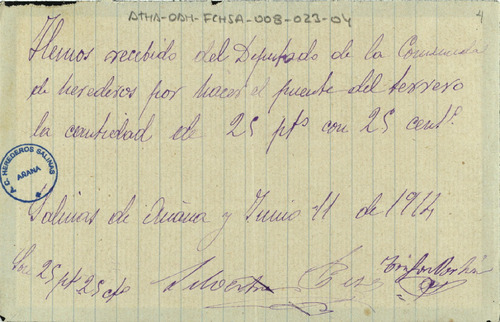 ATHA-DAH-FCHSA-008-023-04
4
Hemos recebido del Deputado de la Comunidad
de herederos por hacer el puente del terrero
la cantidad de 25 pts con 25 cent.
A.C. HEREDEROS SALINAS
AÑANA
Salinas de Anana y Junio 11 de 1914
Son 25 pt 25 cts
Silvestre Perez